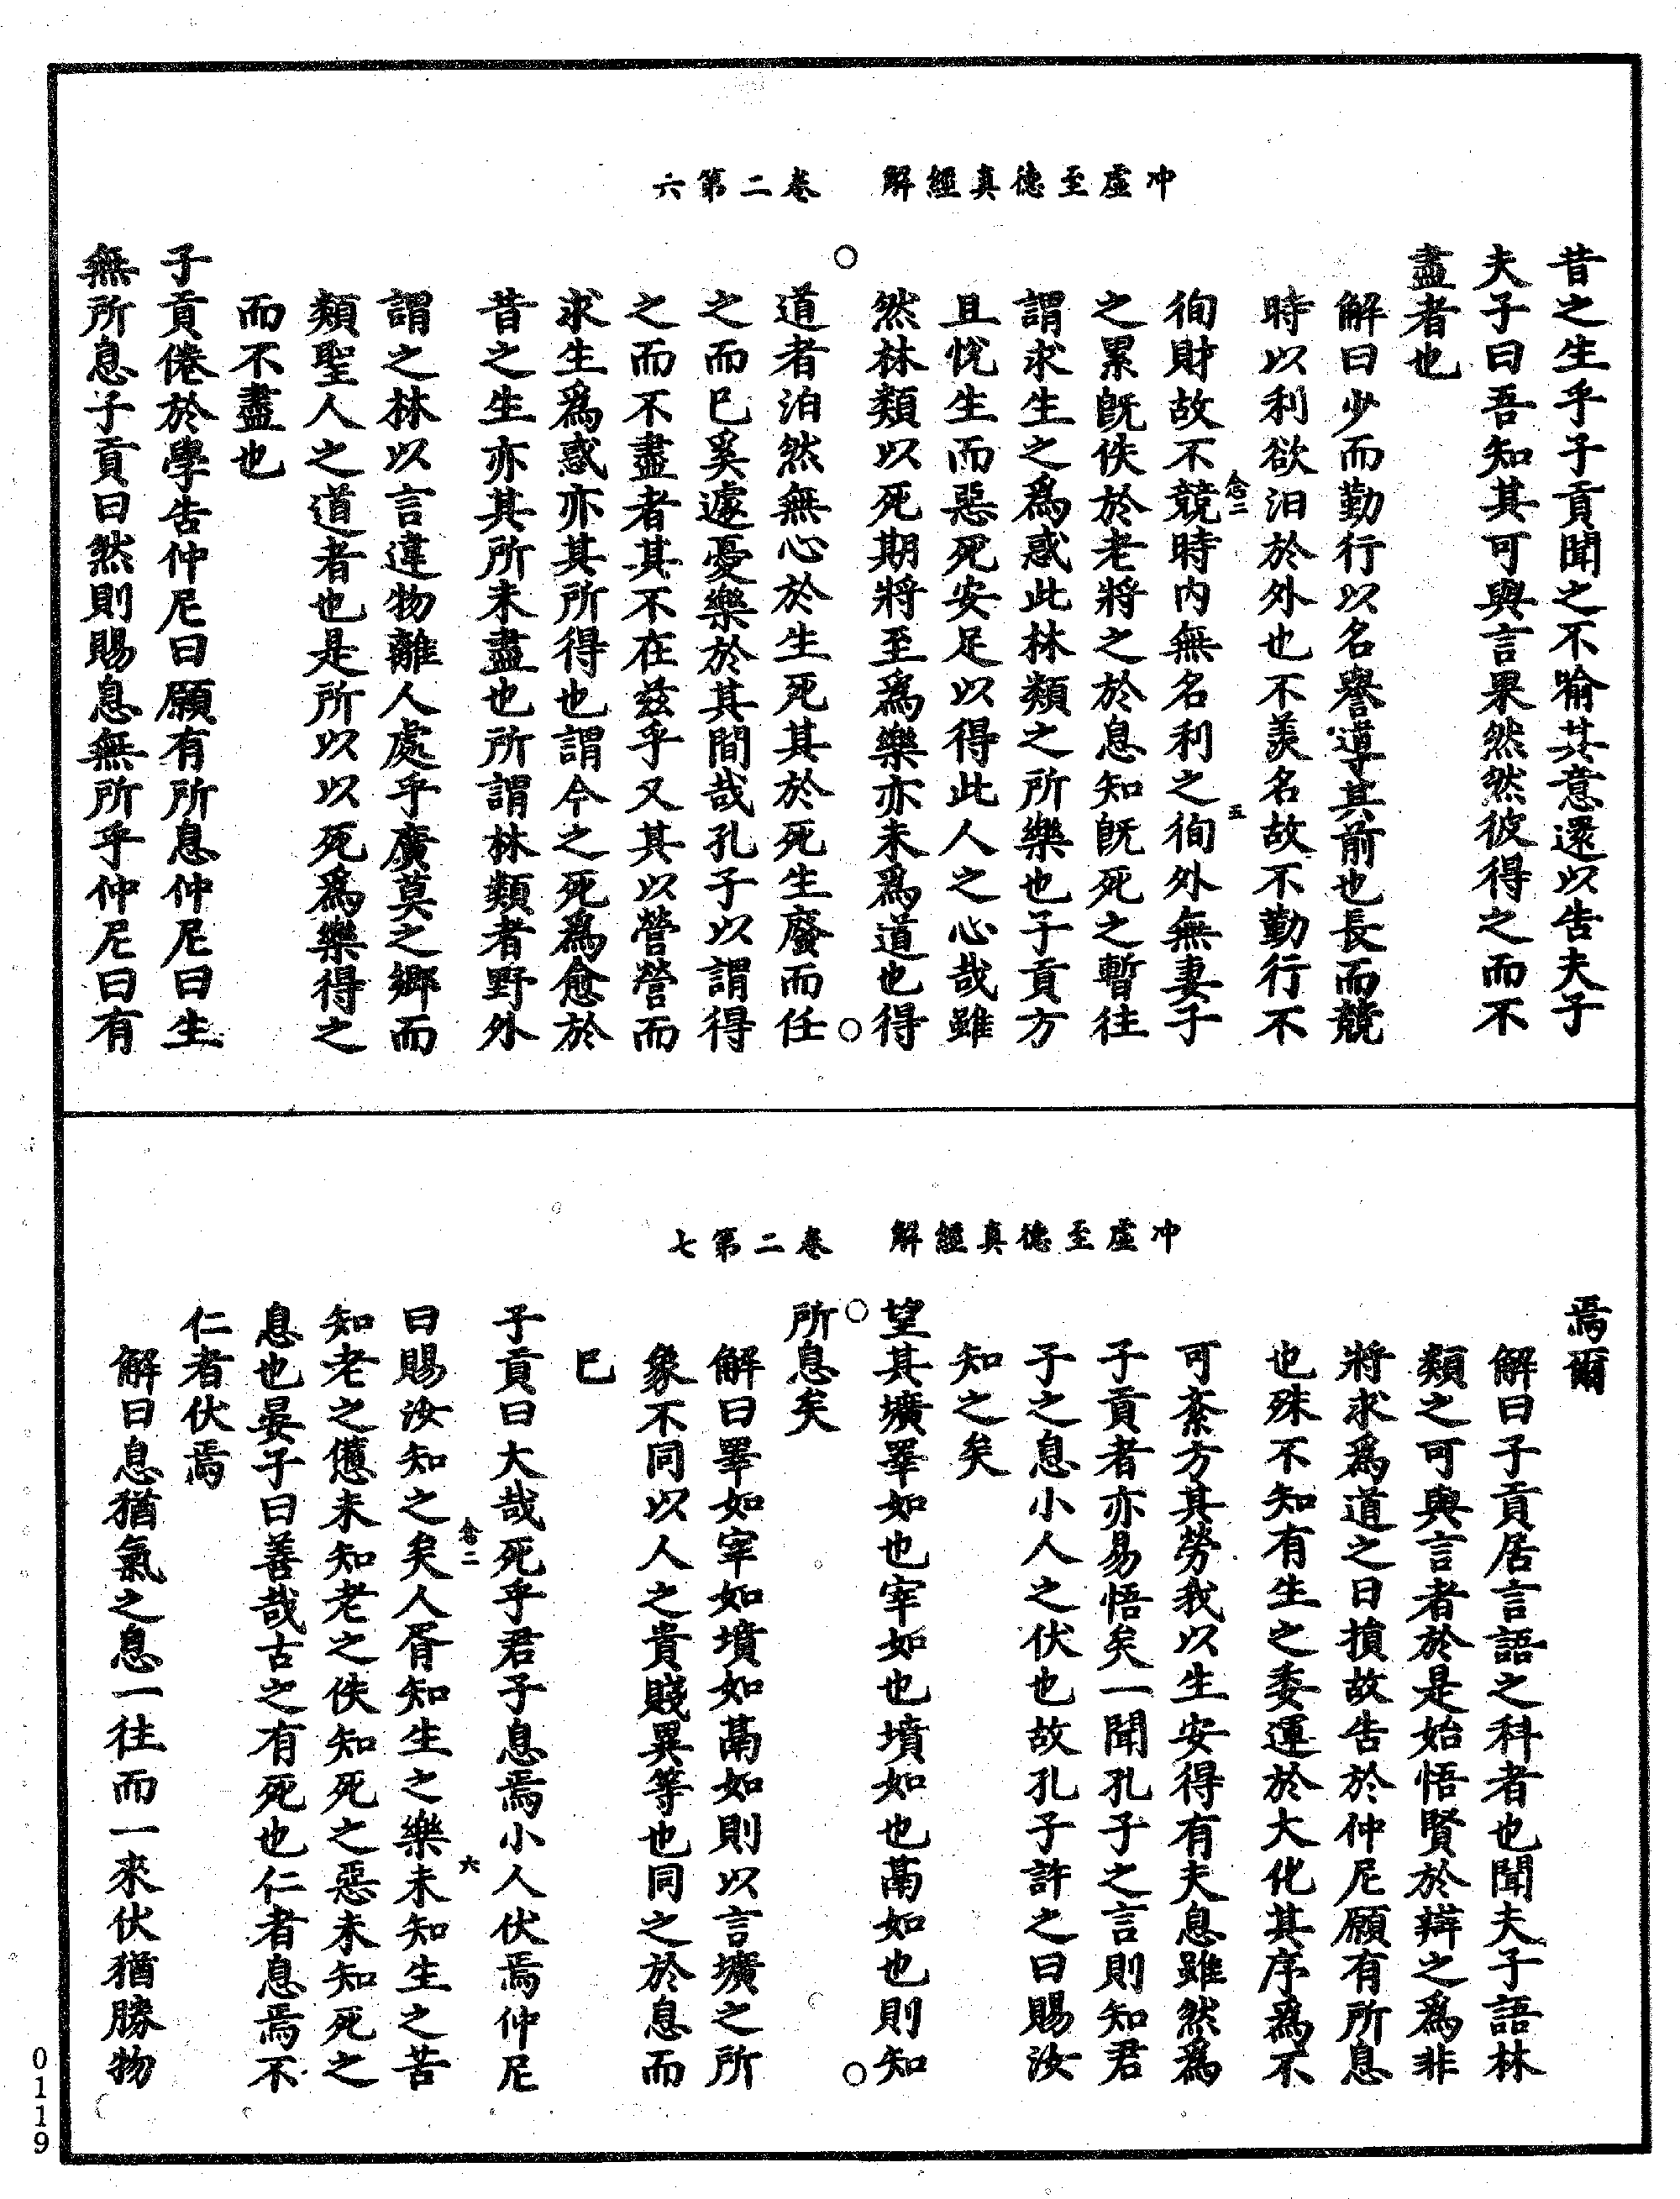 冲虛至德真經解　卷二第六
昔之生乎子貢聞之不喻其意還以告夫子
夫子曰吾知其可與言果然然彼得之而不
盡者也
解曰少而勤行以名譽導其前也長而競
時以利欲汨於外也不羨名故不勤行不
徇財故不競時内無名利之徇外無妻子
之累旣佚於老將之於息知旣死之暫往
謂求生之爲惑此林類之所樂也子貢方
且恱生而惡死安足以得此人之心哉雖
然林類以死期將至爲樂亦未爲道也得
道者泊然無心於生死其於死生廢而任
之而已奚遽憂樂於其間哉孔子以謂得
之而不盡者其不在兹乎又其以營營而
求生爲惑亦其所得也謂今之死爲愈於
昔之生亦其所未盡也所謂林類者野外
謂之林以言違物離人處乎廣莫之鄉而
類聖人之道者也是所以以死爲樂得之
而不盡也
子貢倦於學告仲尼曰願有所息仲尼曰生
無所息子貢曰然則賜息無所乎仲尼曰有
念二
五
冲虛至德真經解　卷二第七
焉爾
解曰子貢居言語之科者也聞夫子語林
類之可與言者於是始悟賢於辯之爲非
將求爲道之日損故告於仲尼願有所息
也殊不知有生之委運於大化其序爲不
可紊方其勞我以生安得有夫息雖然爲
子貢者亦易悟矣一聞孔子之言則知君
子之息小人之伏也故孔子許之曰賜汝
知之矣
望其壙睪如也宰如也墳如也鬲如也則知
所息矣
解曰睪如宰如墳如鬲如則以言壙之所
象不同以人之貴賤異等也同之於息而
已
子貢曰大哉死乎君子息焉小人伏焉仲尼
曰賜汝知之矣人胥知生之樂未知生之苦
知老之憊未知老之佚知死之惡未知死之
息也晏子曰善哉古之有死也仁者息焉不
仁者伏焉
解曰息猶氣之息一往而一來伏猶勝物
念二
六
0119